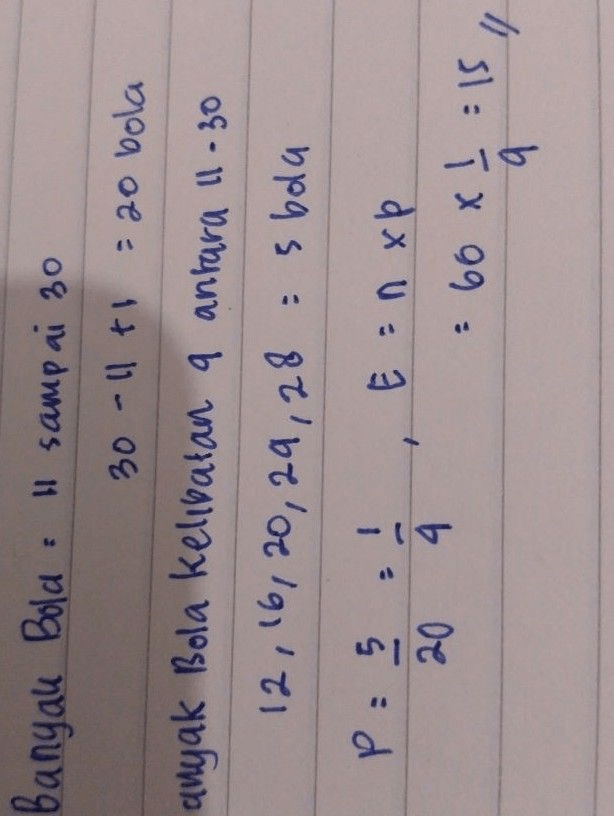 Banyak Bola = 11 sampai 30
30 - 11 + 1 = 20 bola
anyak Bola Kelipatan 4 antara 11 - 30
12, 16, 20, 24, 28 = 5 bola
P = 5/20 = 1/4 , E = n x p
= 60 x 1/4 = 15 //